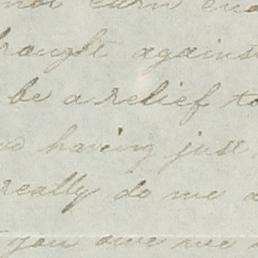 not earn
brought against
be a relief to
having just
really do me a
you owe me a